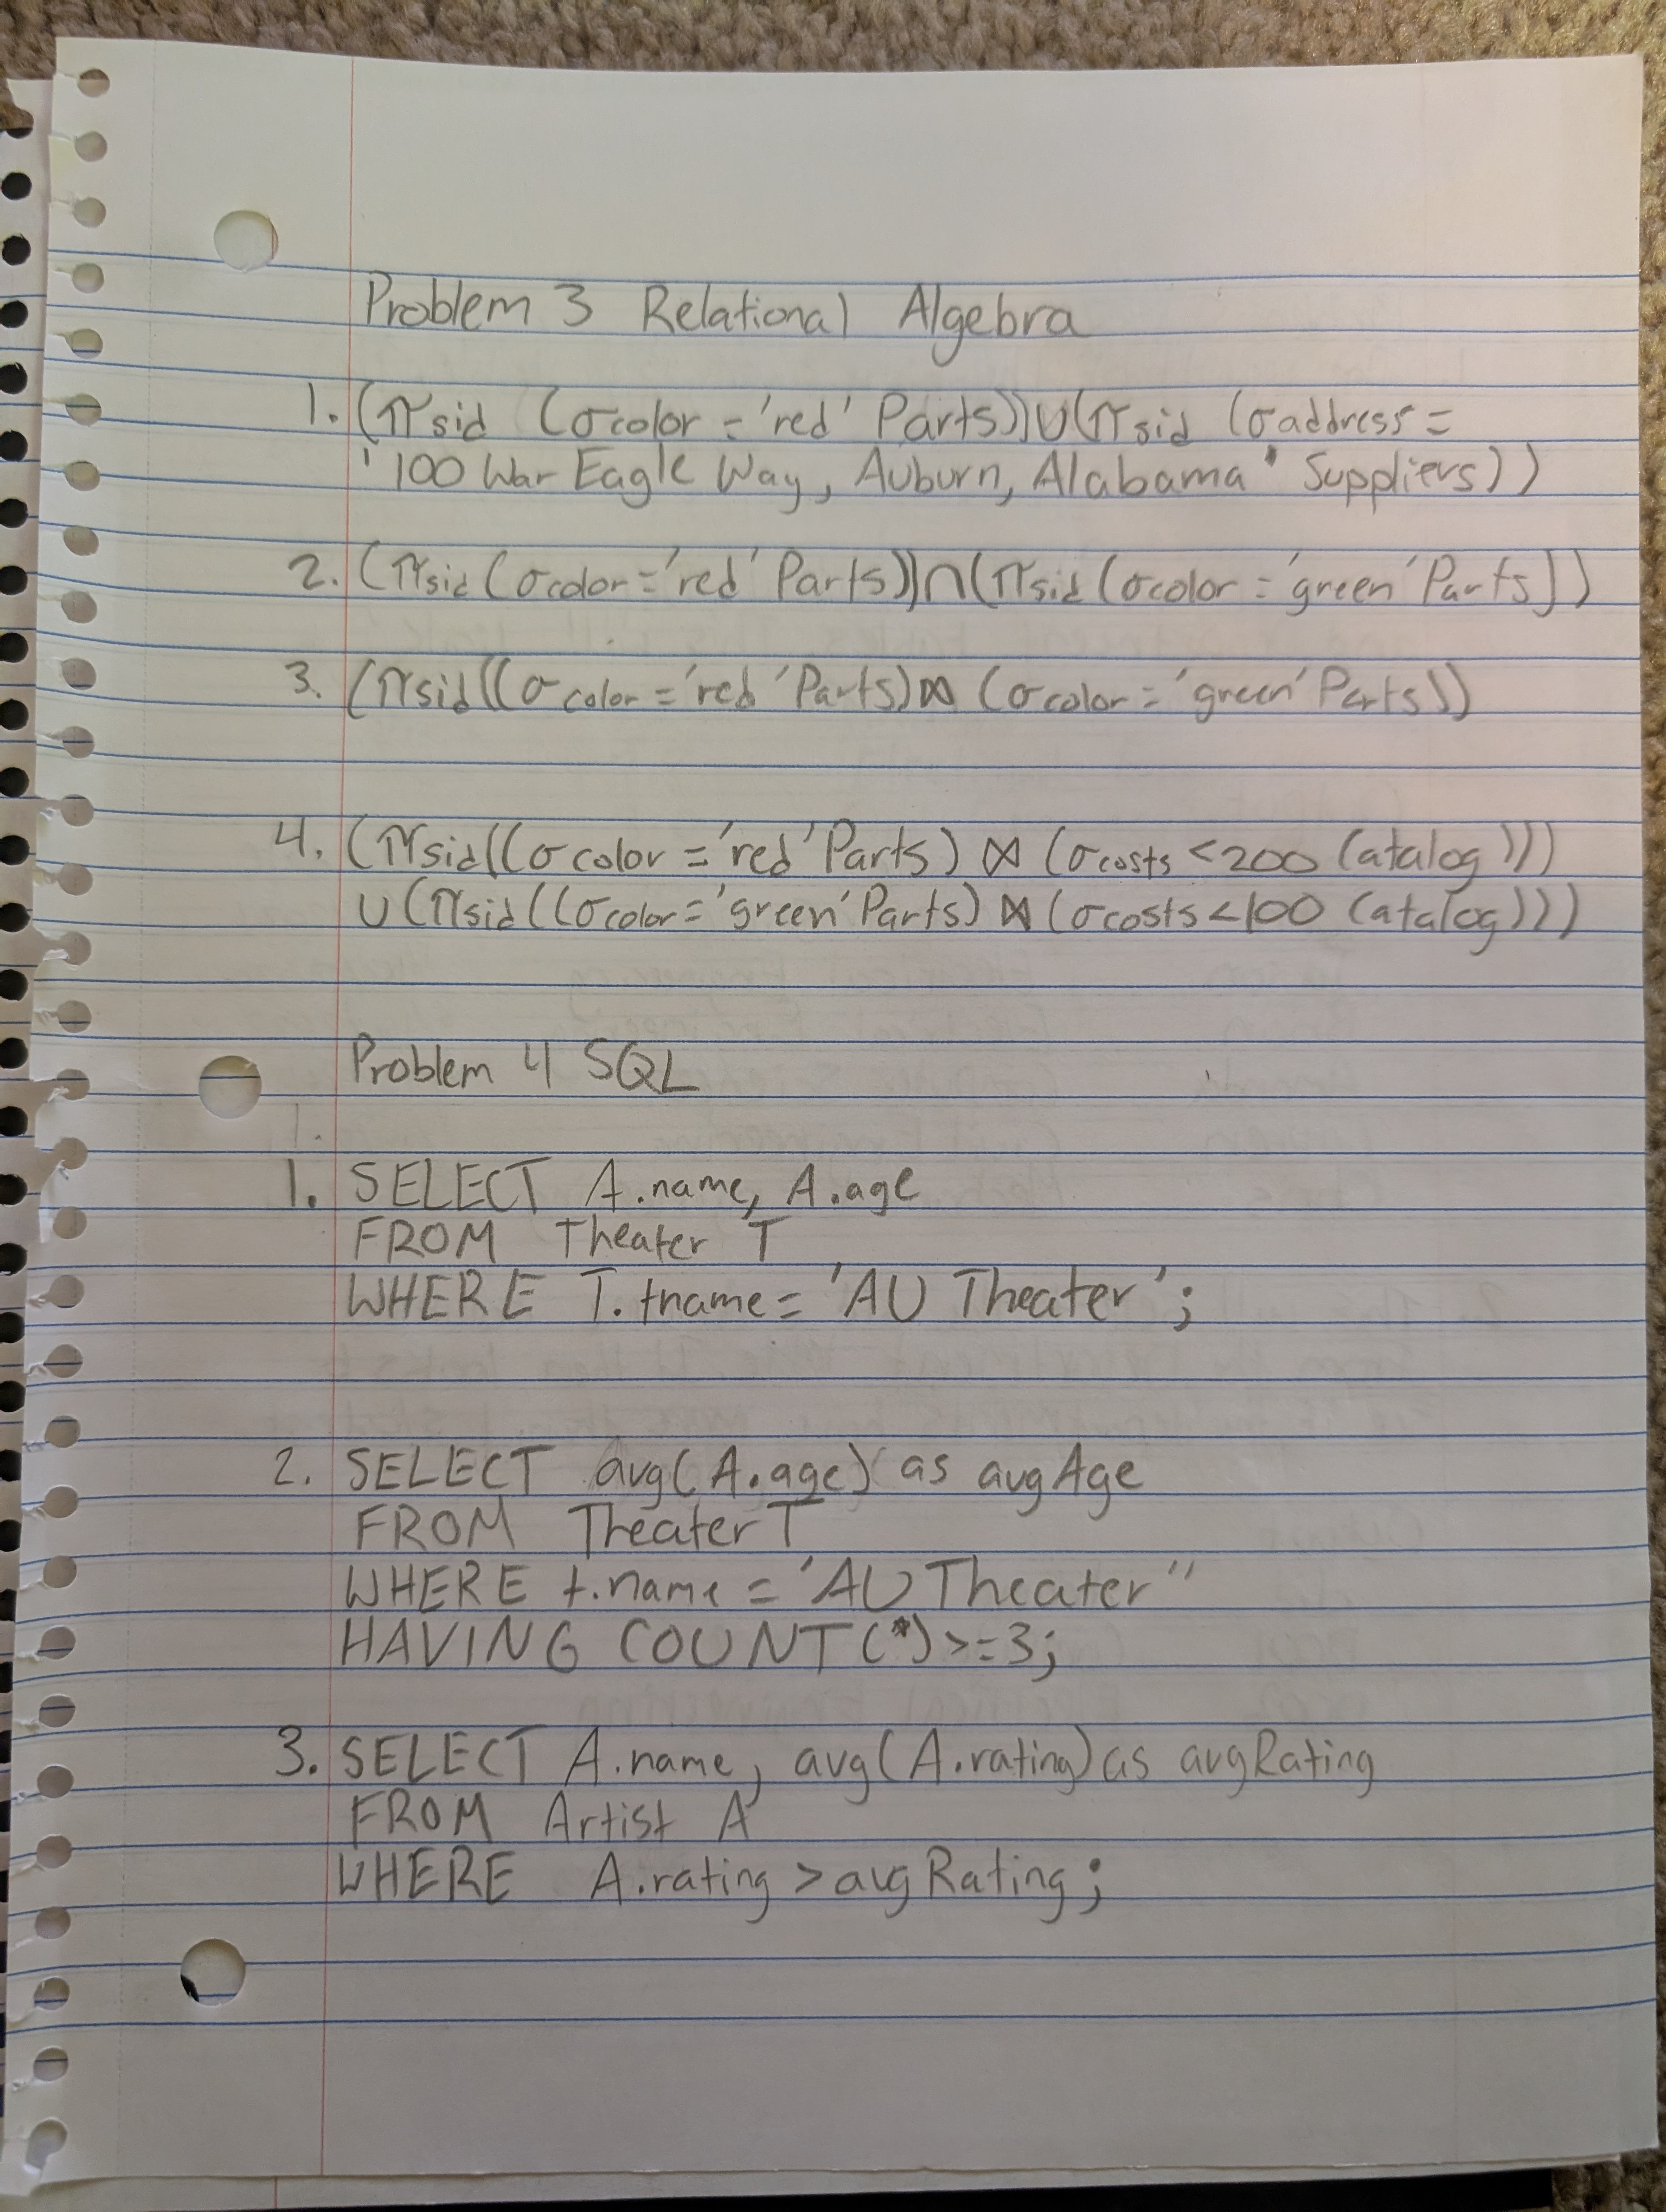 Problem 3 Relational Algebra
1. (πsid (σcolor = 'red' Parts))∪(πsid (σaddress =
'100 War Eagle Way, Auburn, Alabama' Suppliers))
2. (πsid(σcolor='red' Parts))∩(πsid(σcolor='green' Parts))
3. (πsid((σcolor='red' Parts)⋈(σcolor='green' Parts))
4. (πsid((σcolor='red' Parts) ⋈ (σcosts<200 Catalog)))
∪(πsid((σcolor='green' Parts) ⋈ (σcosts<100 Catalog)))
Problem 4 SQL
1.
1. SELECT A.name, A.age
FROM Theater T
WHERE T.tname= 'AU Theater';
2. SELECT avg(A.age) as avgAge
FROM Theater T
WHERE t.name = 'AU Theater''
HAVING COUNT(*)>=3;
3. SELECT A.name, avg(A.rating) as avgRating
FROM Artist A
WHERE A.rating > avgRating;